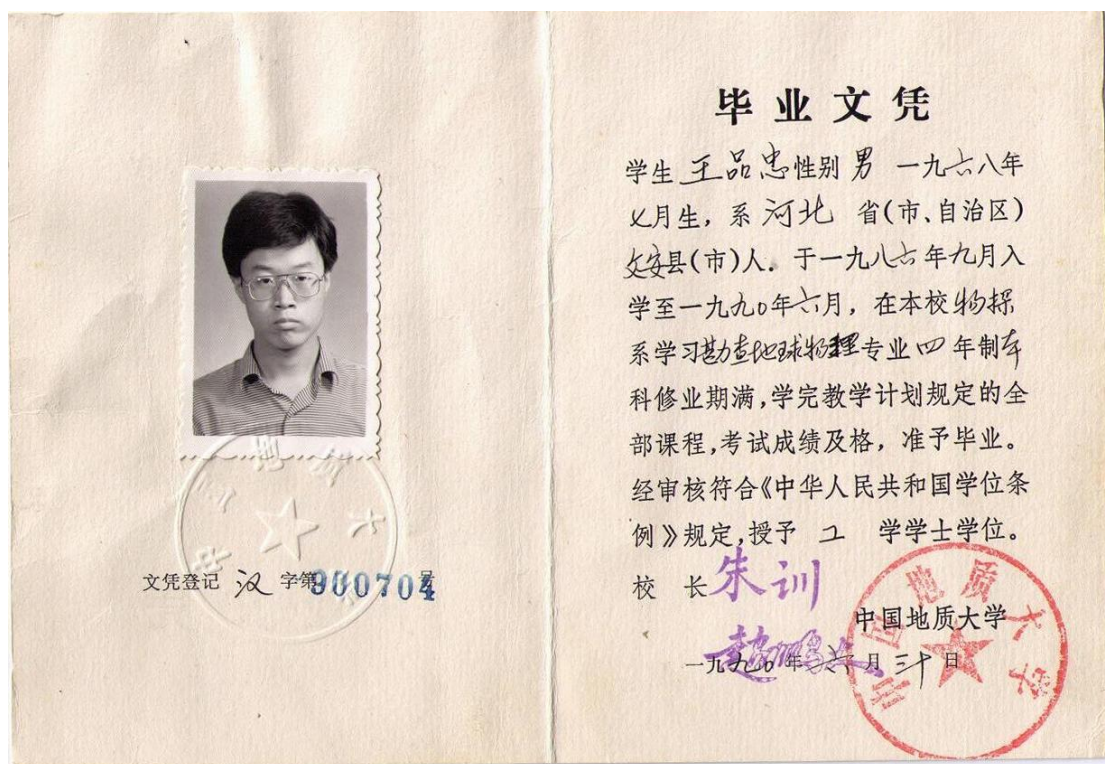 文凭登记 汉 字第900704号
毕业文凭
学生 王品忠 性别 男 一九六八年
七月生，系 河北 省(市、自治区)
文安县(市)人．于一九八六年九月入
学至一九九〇年六月，在本校 物探
系学习勘查地球物理专业 四 年制本
科修业期满，学完教学计划规定的全
部课程，考试成绩及格，准予毕业。
经审核符合《中华人民共和国学位条
例》规定，授予 工 学学士学位。
校 长 朱训
中国地质大学
一九九〇年六月三十日
中国地质大学